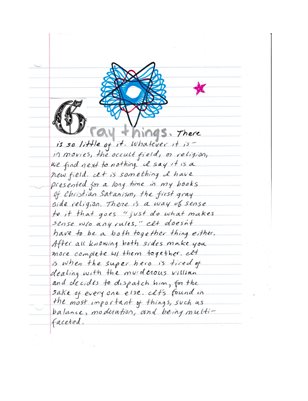 Gray things. There
is so little of it. Whatever it is -
in movies, the occult field, or religion,
we find next to nothing. I say it is a
new field. It is something I have
presented for a long time in my books
of Christian Satanism, the first gray
side religion. There is a way of sense
to it that goes "just do what makes
sense w/o any rules." It doesnt
have to be a both together thing either.
After all knowing both sides make you
more complete w/ them together. It
is when the super hero is tired of
dealing with the murderous villian
and decides to dispatch him, for the
sake of every one else. It's found in
the most important of things, such as
balance, moderation, and being multi-
faceted.